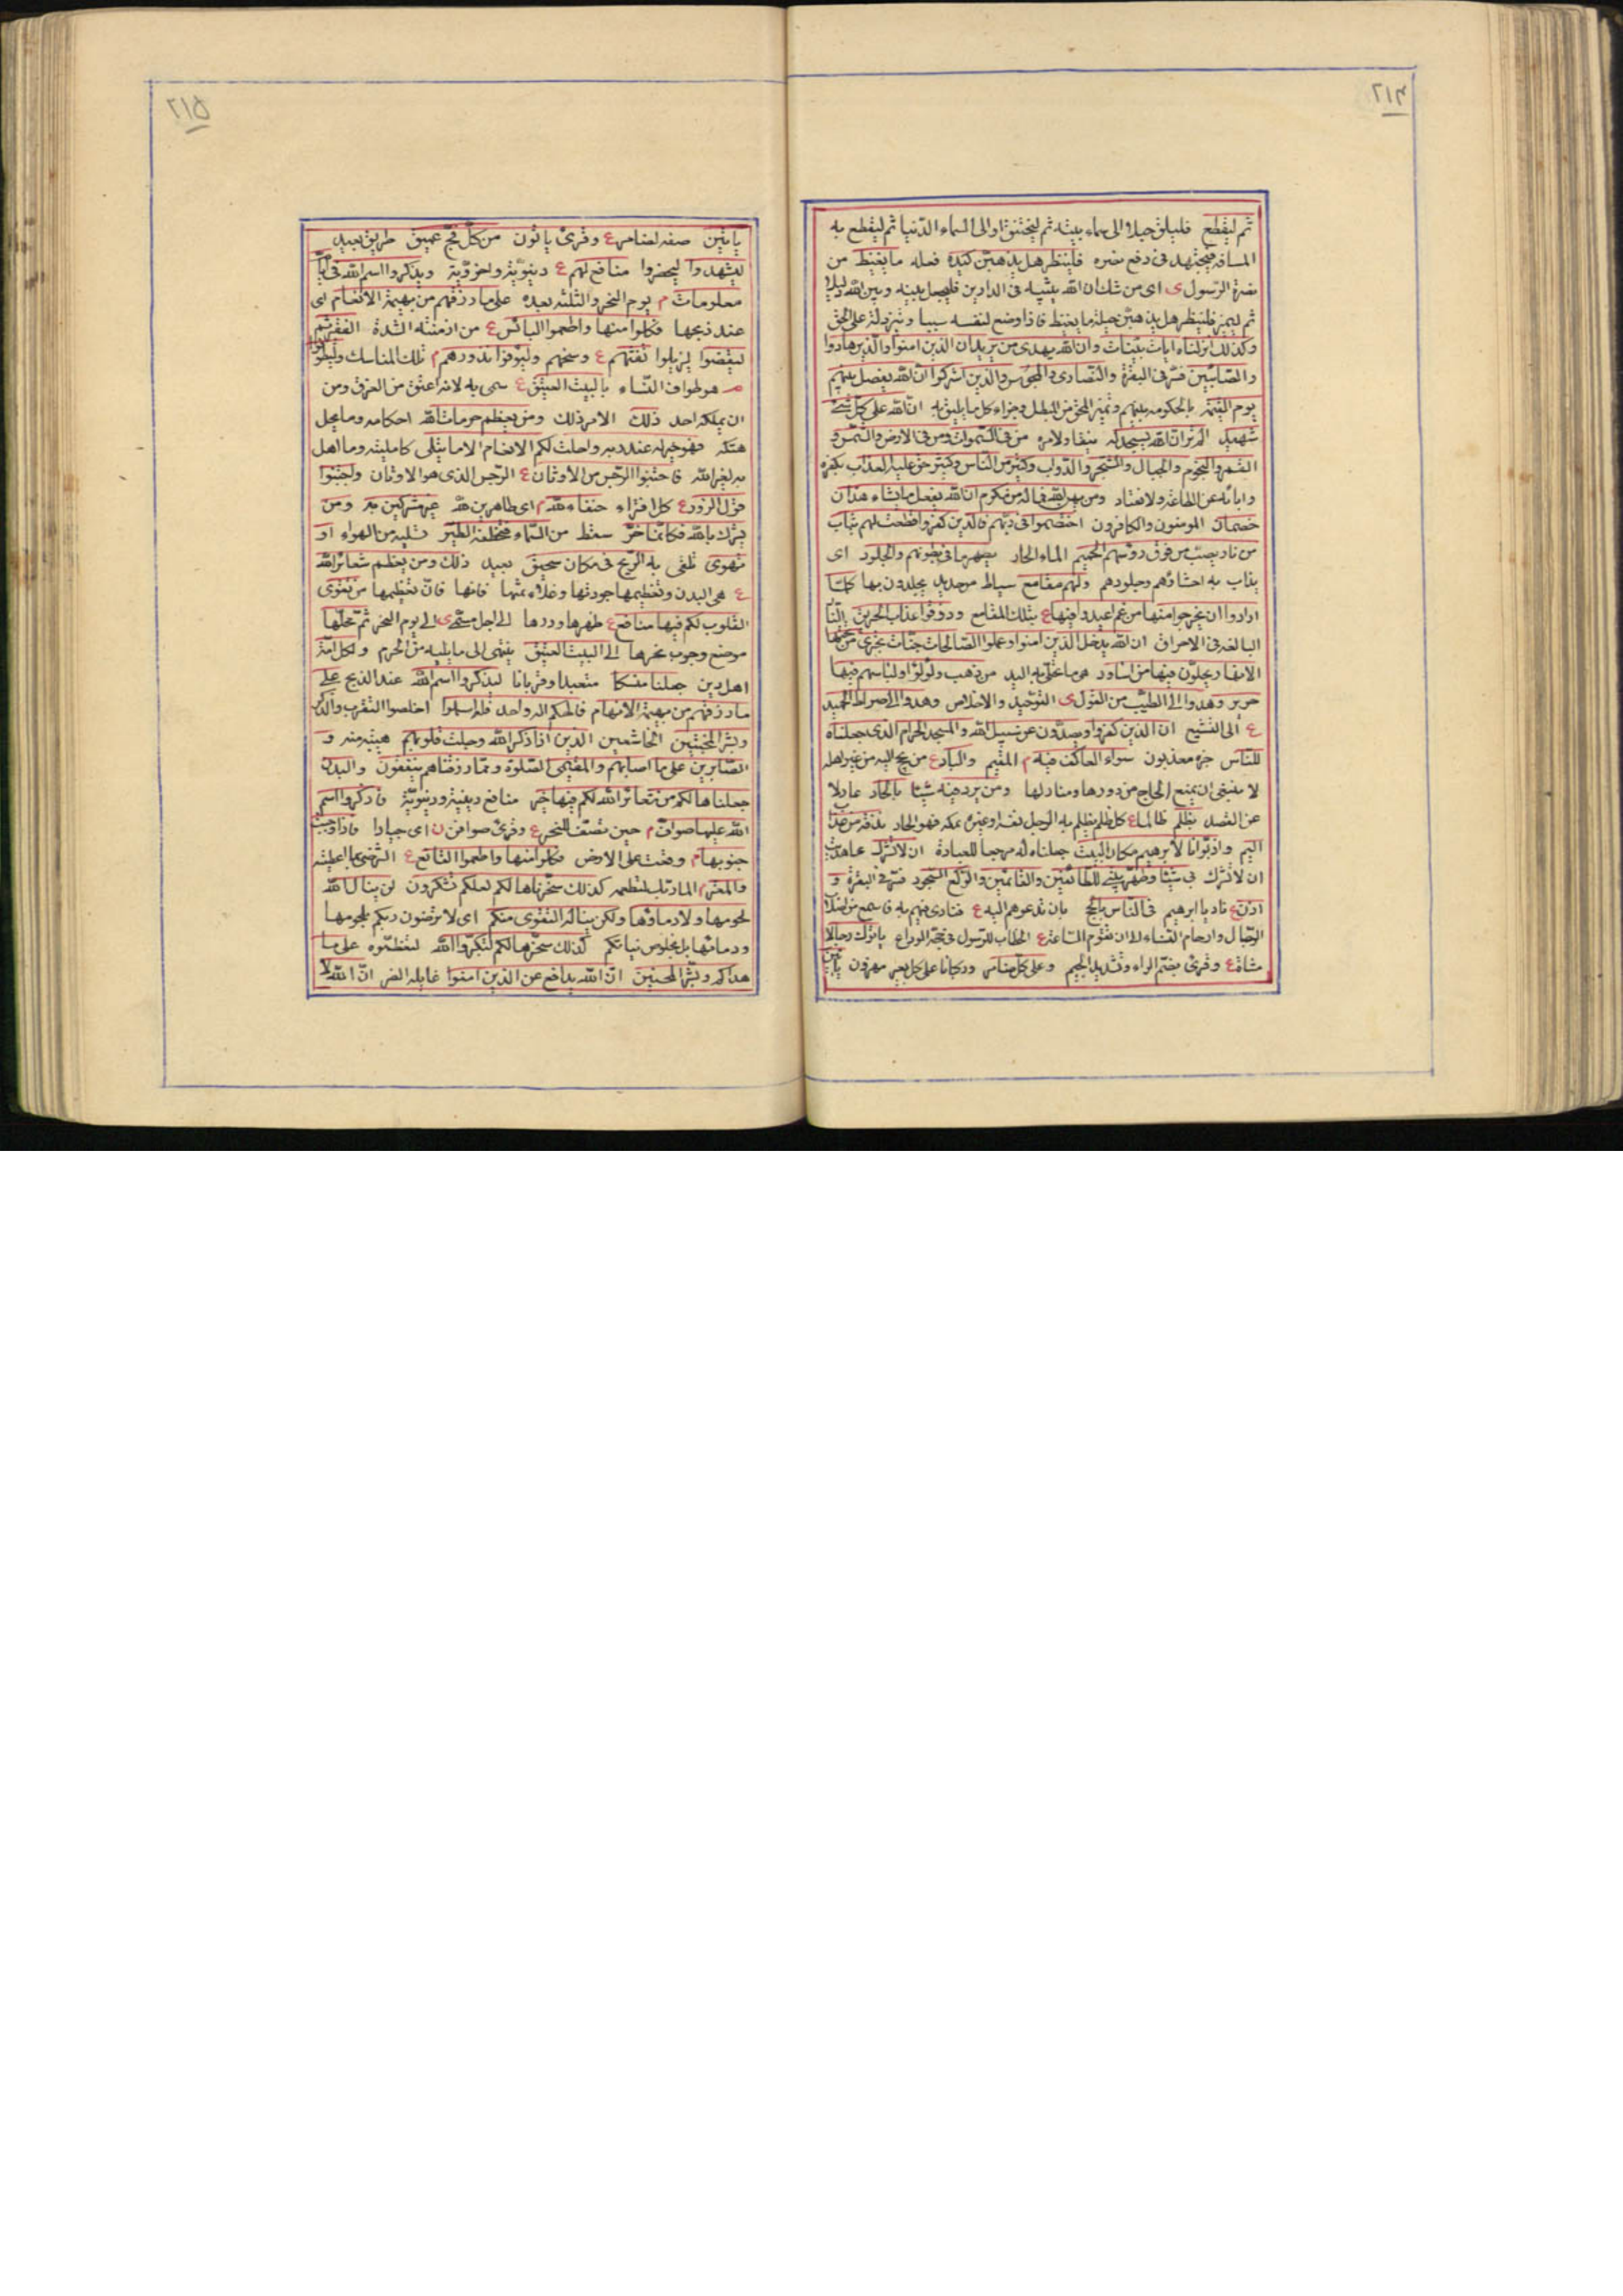 ٢١٤
ثم ليقطع فليلق حبلا الى سماء بيته ثم ليختنق او الى السماء الدنيا ثم ليقطع به
المسافة فيجتهد فى دفع نصره فلينظر هل يذهبن كيده فعله ما يغيظ من
نصرة الرسول ى اى من شك ان الله يثيبه فى الدارين فليجعل بينه وبين الله دليلا
ثم ليميز فلينظر هل يذهبن حيلة ما يغيظ فاذا وضع لنفسه سببا وميز دله على الحق
وكذلك انزلناه ايات بينات وان الله يهدى من يريد ان الذين امنوا والذين هادوا
والصابئين فسر فى البقرة والنصارى والمجوس والذين اشركوا ان الله يفصل بينهم
يوم القيمة بالحكومة بينهم وتميز المحق من المبطل وجزاء كل ما يليق به ان الله على كل شئ
شهيد الم تر ان الله يسجد له ينقاد لامره من فى السموات ومن فى الارض والشمس و
القمر والنجوم والجبال والشجر والدواب وكثير من الناس وكثير حق عليه العذاب بكفره
وابائه عن الطاعة ولانقياد ومن يهن الله فما له من مكرم ان الله يفعل ما يشاء هذان
خصمان المومنون والكافرون اختصموا فى ربهم فالذين كفروا قطعت لهم ثياب
من نار يصب من فوق رؤسهم الحميم الماء الحار يصهر ما فى بطونهم والجلود اى
يذاب به احشاؤهم وجلودهم ولهم مقامع سياط من حديد يجلدون بها كلما
ارادوا ان يخرجوا منها من غم اعيدوا فيها ع بتلك المقامع وذوقوا عذاب الحريق النار
البالغة فى الاحراق ان الله يدخل الذين امنوا وعملوا الصالحات جنات تجرى من تحتها
الانهار يحلون فيها من اساور هى ما تحلى به اليد من ذهب ولؤلؤا ولباسهم فيها
حرير وهدوا الى الطيب من القول ى التوحيد والاخلاص وهدوا الى صراط الحميد
ع الى التشيع ان الذين كفروا ويصدون عن سبيل الله والمسجد الحرام الذى جعلناه
للناس خبره معذبون سواء العاكف فيه م المقيم والباد ع من يحج اليه من غير اهله
لا ينبغى ان يمنع الحاج من دورها ومنازلها ومن يرد فيه شيئا بالحاد عادلا
عن القصد بظلم ظالما ع كل ظلم يظلم به الرجل نفسه او غيره بمكة فهو الحاد نذقه من عذاب
اليم واذ بوانا لابرهيم مكان البيت جعلناه له مرجعا للعبادة ان لا تشرك عاهدت
ان لا تشرك بى شيئا وطهر بيتى للطائفين والقائمين والركع السجود فسر فى البقرة و
اذن ع ناد يا ابرهيم فى الناس بالحج بان تدعوهم اليه ع فنادى فيهم به فاسمع من اصلاب
الرجال وارحام النساء الى ان تقوم الساعة ع الخطاب للرسول فى حجة الوداع ياتوك رجالا
مشاة ع وقرئ بضم الراء وتشديد الجيم وعلى كل ضامر وركبانا على كل بعير مهزول ياتين
٢١٥
ياتين صفة لضامر ع وقرئ ياتون من كل فج عميق طريق بعيد
ليشهدوا ليحضروا منافع لهم ع دينوية واخروية ويذكروا اسم الله فى ايام
معلومات م يوم النحر والثلثة بعده على ما رزقهم من بهيمة الانعام اى
عند ذبحها فكلوا منها واطعموا البائس ع من ازمنته الشدة الفقير ثم
ليقضوا ليزيلوا تفثهم ع وسخهم وليوفوا نذورهم م تلك المناسك وليطوفوا
م هو طواف النساء بالبيت العتيق ع سمى به لانه اعتق من الغرق ومن
ان يملكه احد ذلك الامر ذلك ومن يعظم حرمات الله احكامه وما يحل
هتكه فهو خير له عند ربه واحلت لكم الانعام الا ما يتلى كالميتة وما اهل
به لغير الله فاجتنبوا الرجس من الاوثان ع الرجس الذى هو الاوثان واجتنبوا
قول الزور ع كل افتراء حنفاء لله م اى طاهرين لله غير مشركين به ومن
يشرك بالله فكانما خر سقط من السماء فتخطفه الطير تسلبه من الهواء او
تهوى تلقى به الريح فى مكان سحيق بعيد ذلك ومن يعظم شعائر الله
ع هى البدن وتعظيمها جودتها وغلاء ثمنها فانها فان تعظيمها من تقوى
القلوب لكم فيها منافع ع ظهرها ودرها الى اجل مسمى ى الى يوم النحر ثم محلها
موضع وجوب نحرها الى البيت العتيق ينتهى الى ما يليه من الحرم ولكل امة
اهل دين جعلنا منسكا متعبدا وقربانا ليذكروا اسم الله عند الذبح على
ما رزقهم من بهيمة الانعام فالهكم اله واحد فله اسلموا اخلصوا التقرب والذكر
وبشر المخبتين الخاشعين الذين اذا ذكر الله وجلت قلوبهم هيبة منه و
الصابرين على ما اصابهم والمقيمى الصلوة ومما رزقناهم ينفقون والبدن
جعلناها لكم من شعائر الله لكم فيها خير منافع دينية ودنيوية فاذكروا اسم
الله عليها صواف م حين تصف للنحر ع وقرئ صوافن ن اى جيادا فاذا وجبت
جنوبها م وقعت على الارض فكلوا منها واطعموا القانع ع الرضى بما اعطيته
والمعتر م المار بك لتطعمه كذلك سخرناها لكم لعلكم تشكرون لن ينال الله
لحومها ولا دماؤها ولكن يناله التقوى منكم اى لا ترضون ربكم بلحومها
ودمائها بل بخلوص نياتكم كذلك سخرها لكم لتكبروا الله لتعظموه على ما
هداكم وبشر المحسنين ان الله يدافع عن الذين امنوا غايلة الضر ان الله لا